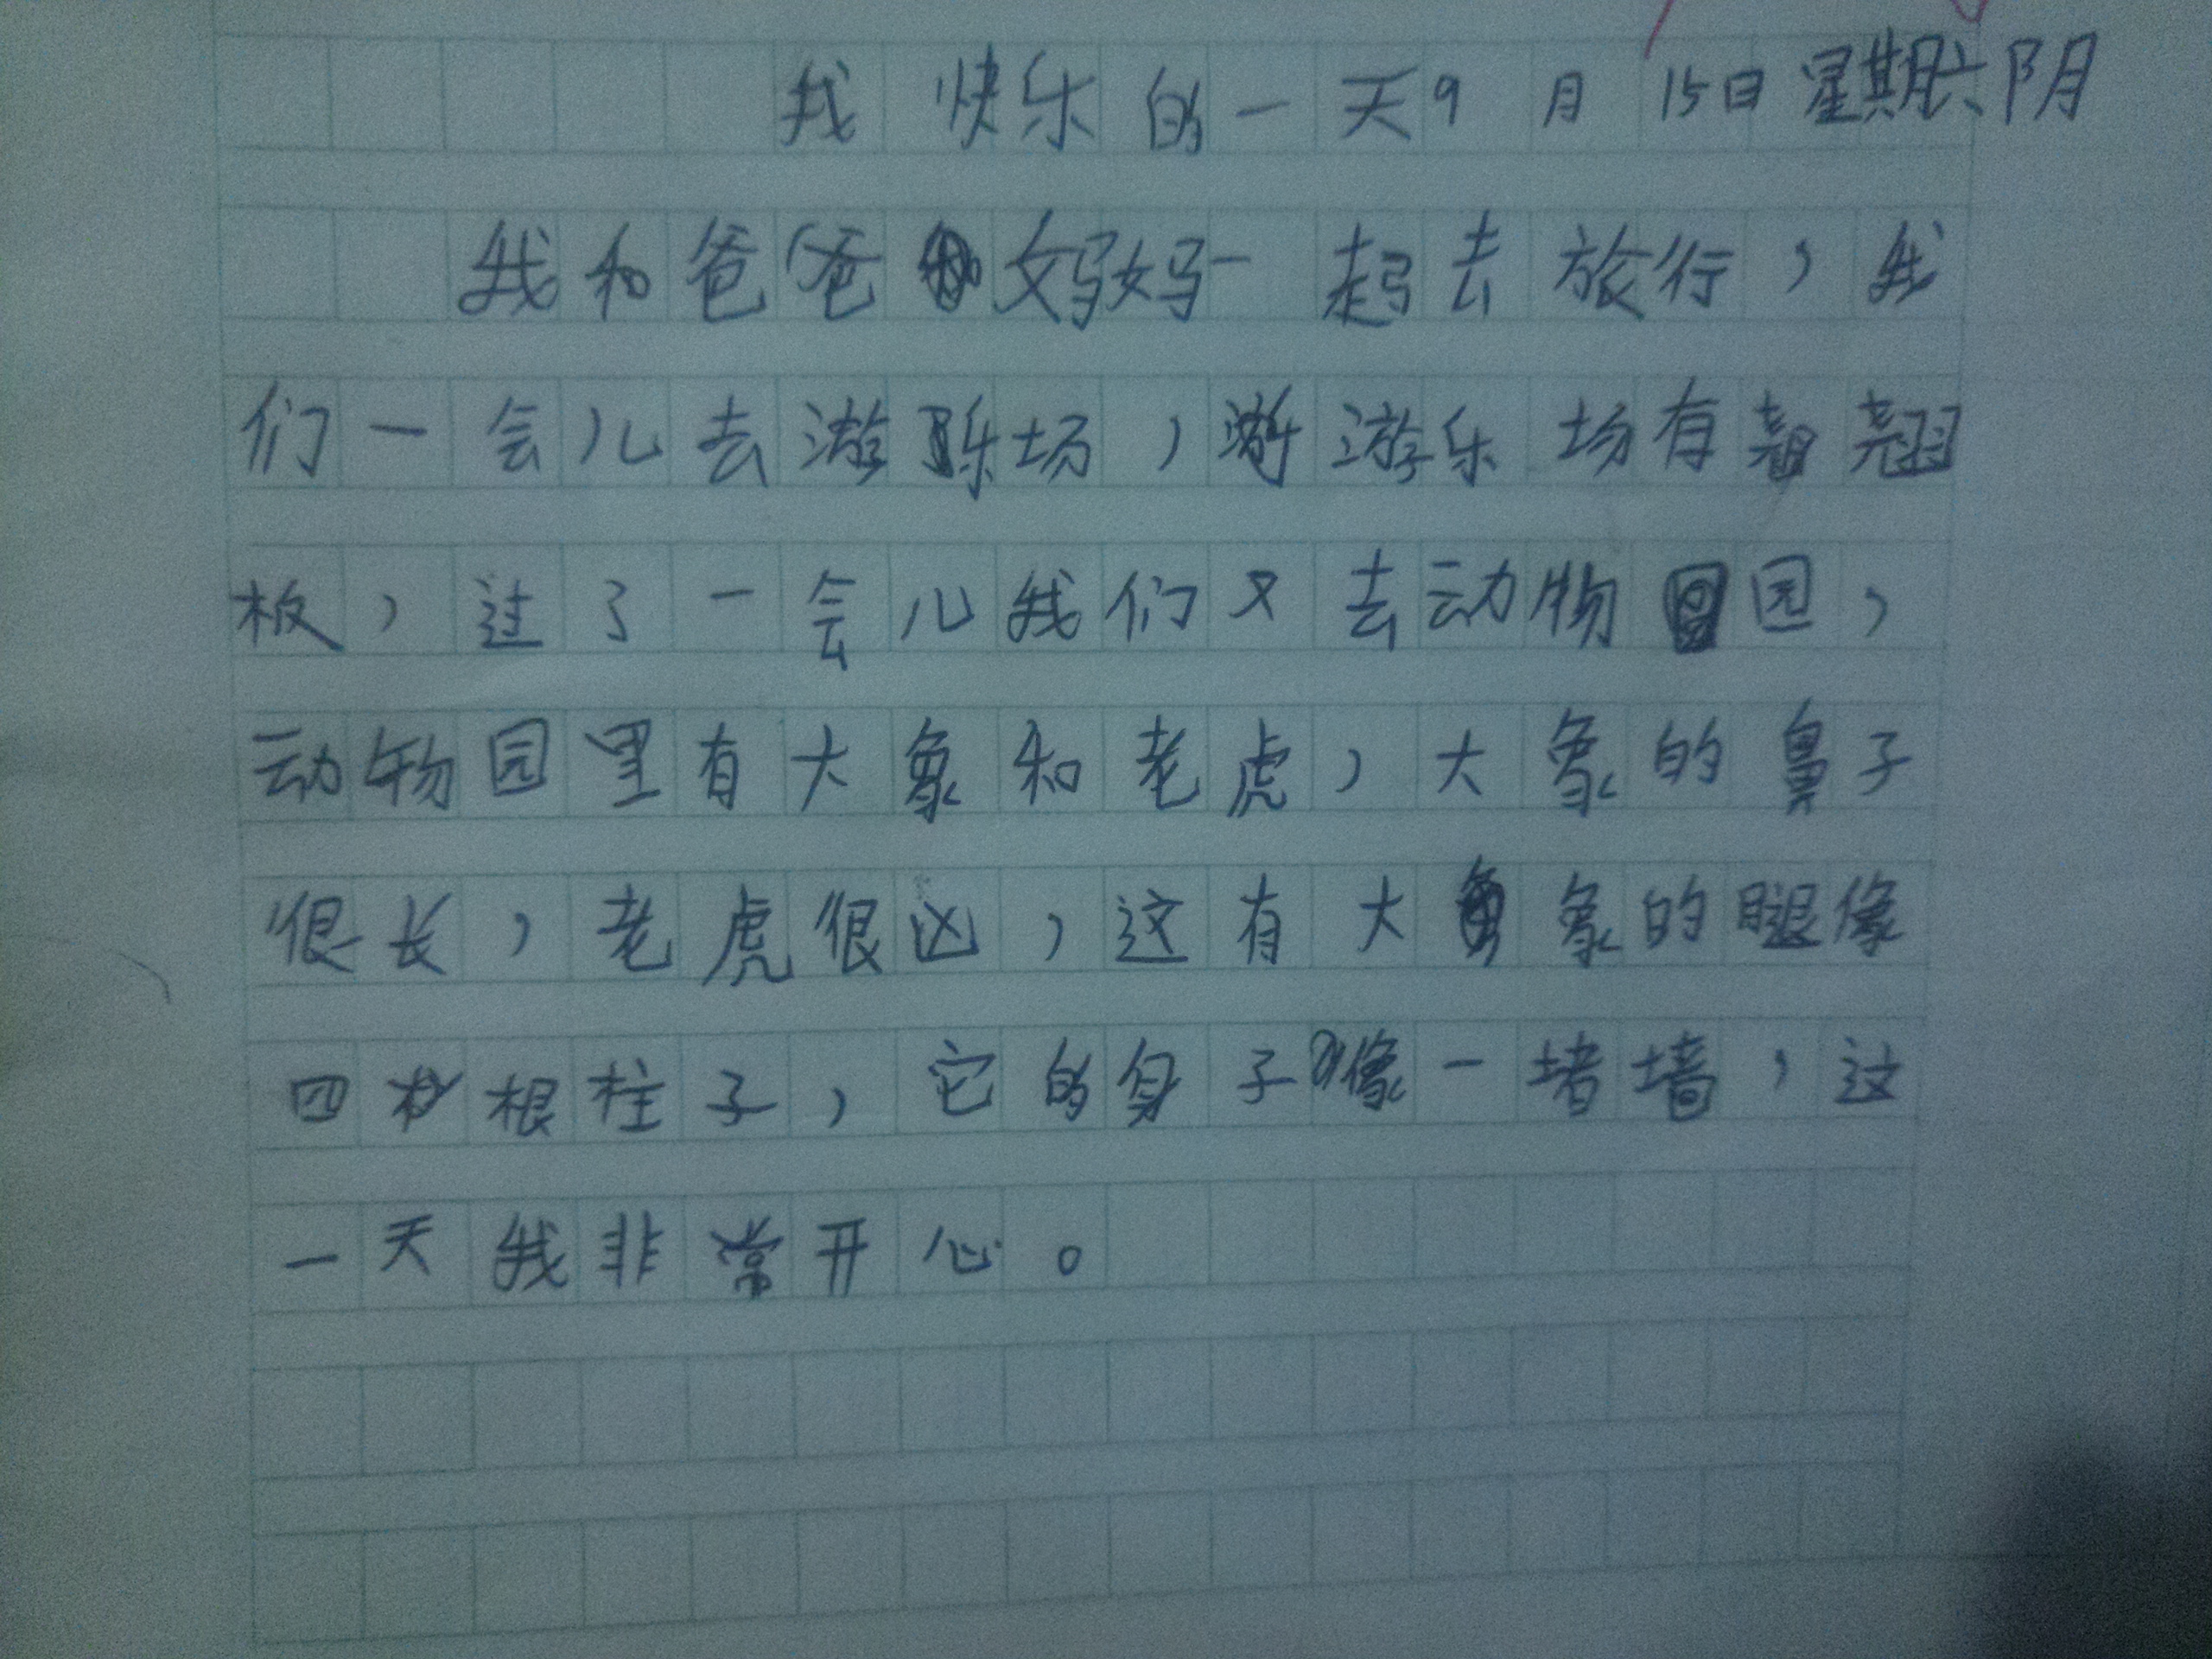 我快乐的一天9月15日星期六阴
我和爸爸妈妈一起去旅行，我
们一会儿去游乐场，游乐场有翘翘
板，过了一会儿我们又去动物园，
动物园里有大象和老虎，大象的鼻子
很长，老虎很凶，这有大象的腿像
四根柱子，它的身子像一堵墙，这
一天我非常开心。